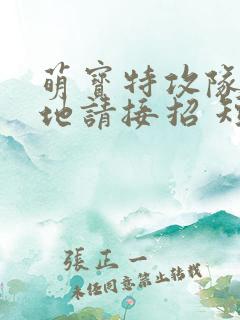 萌寶特攻隊
地請接招
張正一
未经同意禁止转载